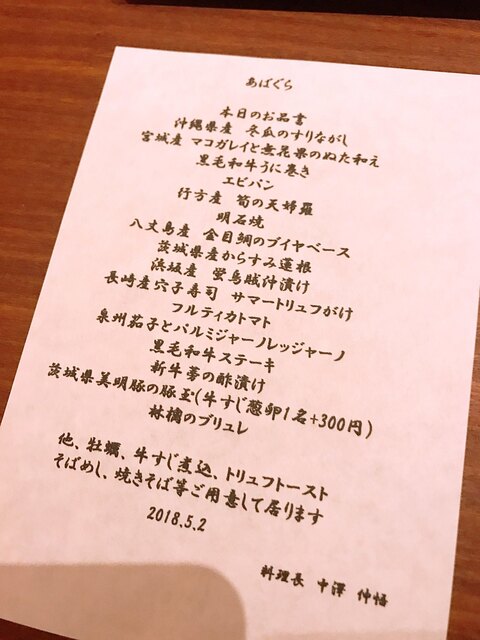 あばぐら
本日のお品書
沖縄県産 冬瓜のすりながし
宮城産 マコガレイと無花果のぬた和え
黒毛和牛うに巻き
エビパン
行方産 筍の天婦羅
明石焼
八丈島産 金目鯛のブイヤベース
茨城県産からすみ蓮根
浜坂産 蛍烏賊沖漬け
長崎産穴子寿司 サマートリュフがけ
フルティカトマト
泉州茄子とパルミジャーノレッジャーノ
黒毛和牛ステーキ
新牛蒡の酢漬け
茨城県美明豚の豚玉(牛すじ葱卵1名+300円)
林檎のブリュレ
他、牡蠣、牛すじ煮込、トリュフトースト
そばめし、焼きそば等ご用意して居ります
2018.5.2
料理長 中澤 仲悟